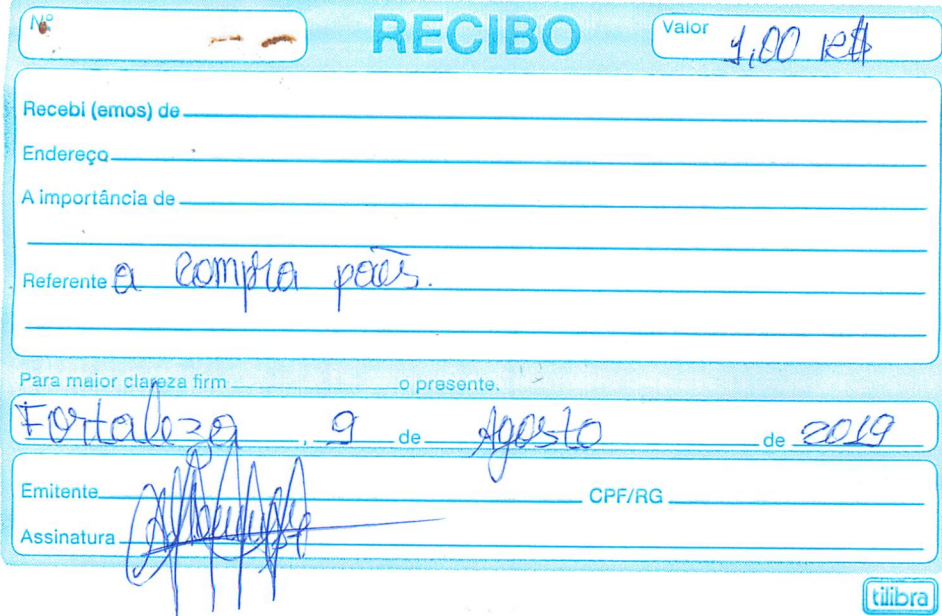 Nº RECIBO Valor 1,00 R$
Recebi (emos) de
Endereço
A importância de
Referente a compra pães.
Para maior clareza firm o presente.
Fortaleza, 9 de Agosto de 2019
Emitente CPF/RG
Assinatura
tilibra